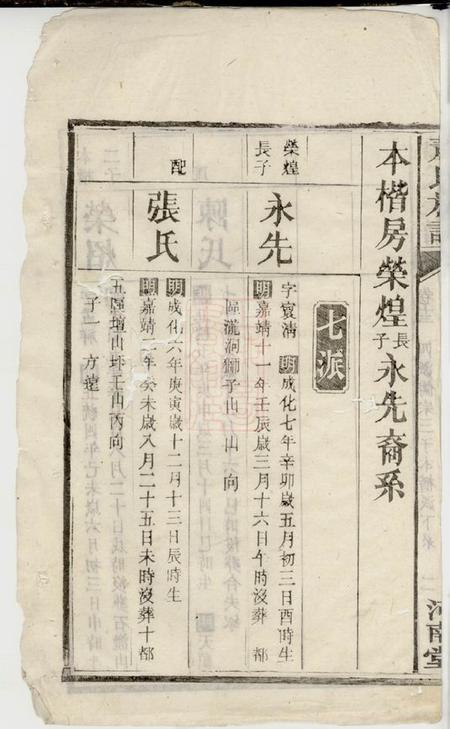 本楷房榮煌長子永先裔系
七派
榮煌長子
永先
字寬清 明成化七年辛卯歲五月初三日酉時生
明嘉靖十一年壬辰歲三月十六日午時沒葬 都
區瀧洞獅子山 山 向
配
張氏
明成化六年庚寅歲十二月十三日辰時生
明嘉靖二年癸未歲八月二十五日未時沒葬十都
五區壇山圷壬山丙向
子 方遠
河南堂